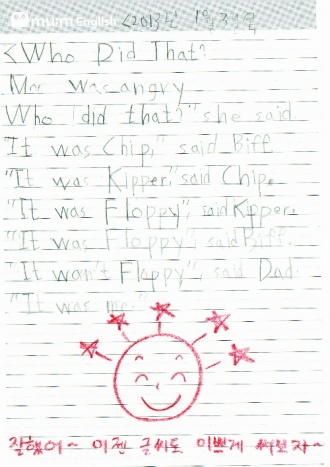 mum English <2013년 1월 31일
<Who Did That?
Mum was angry
Who did that?" she said
"It was Chip," said Biff
"It was Kipper," said Chip.
"It was Floppy", said Kipper.
"It was Floppy", said Biff.
"It wan't Flappy", said Dad.
"It was me."
잘했어~ 이젠 글씨도 이쁘게 써보자~